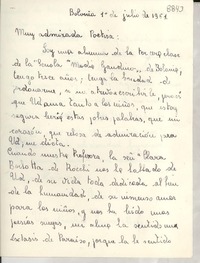 8847
Bolonia 1º de julio de 1951
Muy admirada Poetisa:
Soy una alumna de la tercera clase
de la Escuela "Media Gandino", de Bolonia,
tengo trece años; tenga la bondad de
perdonarme, si me atrevo escribirle, pero sé
que Ud ama tanto a los niños, que estoy
segura leerá estas pobres palabras, que mi
corazón, que rebosa de admiración para
Ud, me dicta.
Cuando nuestra Profesora, la señ. Clara
Bartolla de Rocchi nos ha hablado de
Ud, de su vida toda dedicada al bien
de la humanidad, de su inmenso amor
para los niños, y nos ha leído unas
poesías suyas, me alma ha sentido un
éxtasis de Paraíso, porque la he sentido